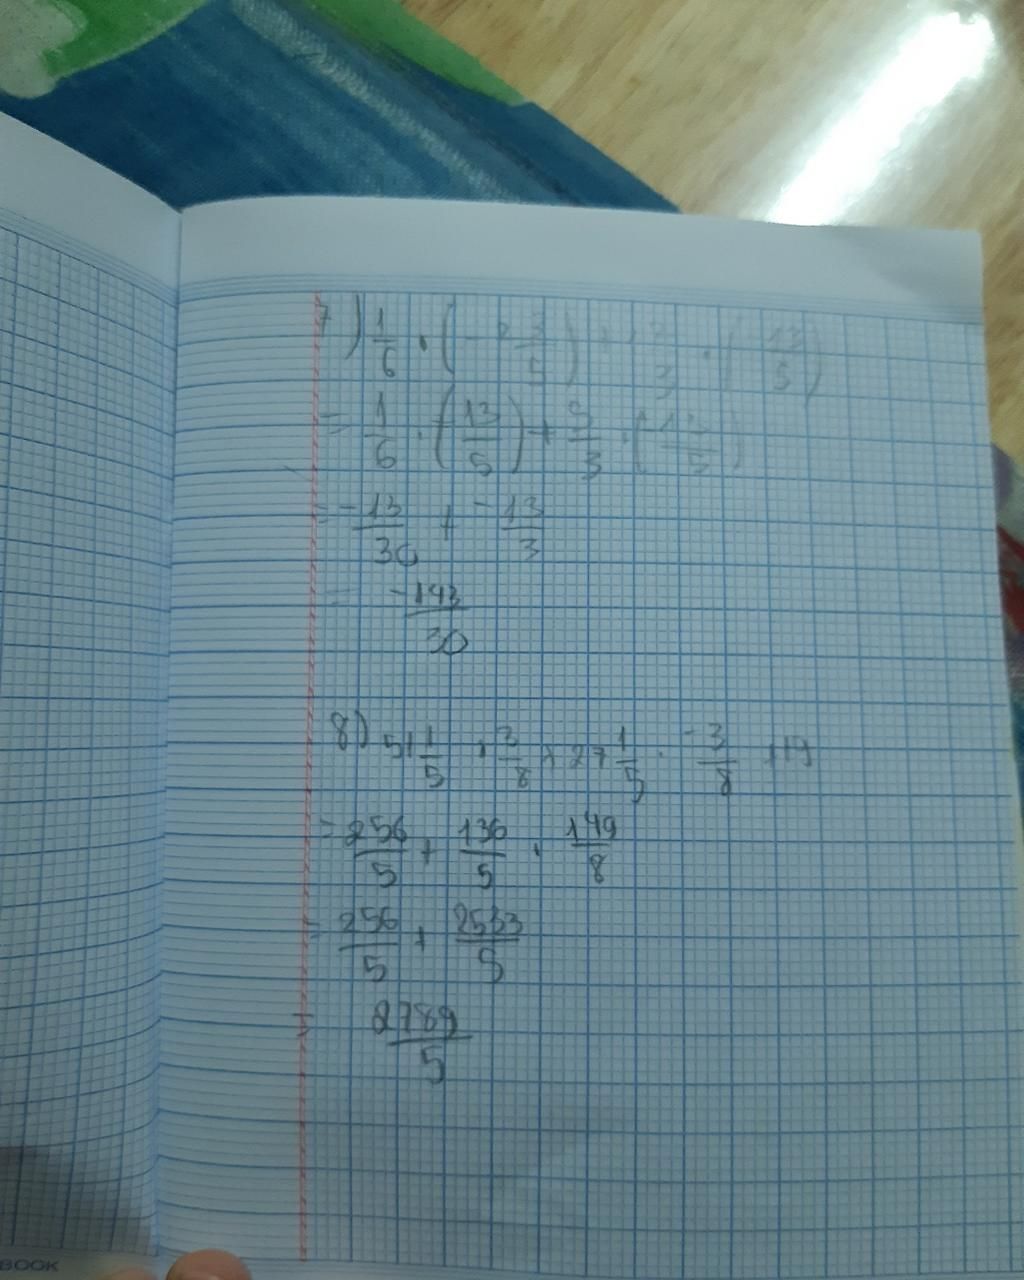 7) 1/6 . (- 2 3/5) + 1 2/3 . (- 13/5)
= 1/6 . (13/5) + 5/3 . (13/5)
= -13/30 + -13/3
= -143/30
8) 51 1/5 . 3/8 + 27 1/5 . -3/8 + 19
= 256/5 + 136/5 . 149/8
= 256/5 + 2533/5
= 2789/5
BOOK